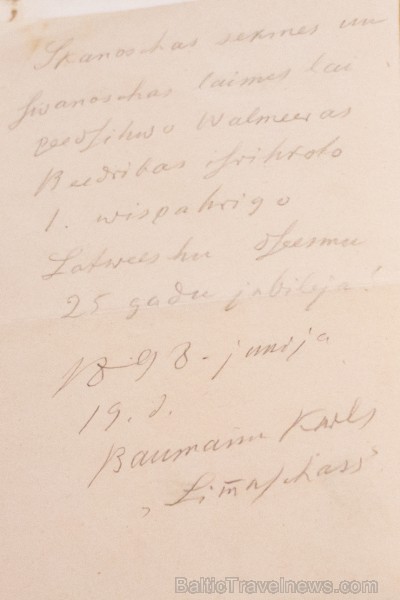 Skanoschas sekmes un
swanoschas laimes lai
peedsihwo Walmeeras
Beedribas isrihkoto
1. wispahrigo
Latweeshu dseesmu
25 gadu jubileja!
1898. junija
19. d.
Baumann Karls
„Limaschass
BalticTravelnews.com